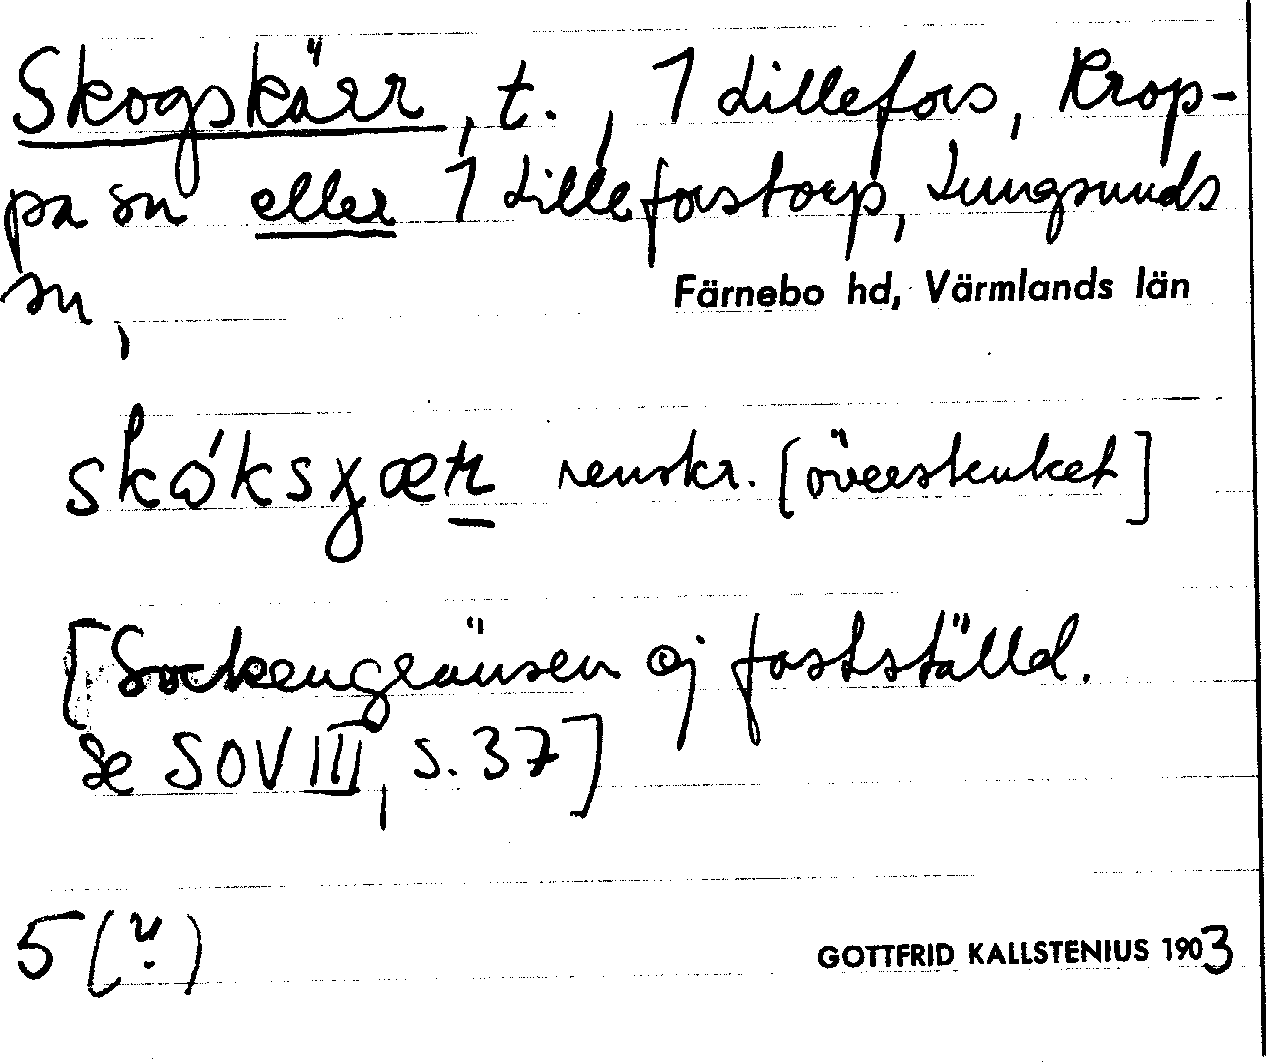 Skogskärr, t., 1 Lillefors, Krop-
pa sn eller 1 Lilleforstorp, Lungsunds
sn,
Färnebo hd, Värmlands län
skóksχær renskr. [överstruket]
[Sockengränsen ej fastställd.
Se SOV III, s. 37]
5 (?)
GOTTFRID KALLSTENIUS 1903